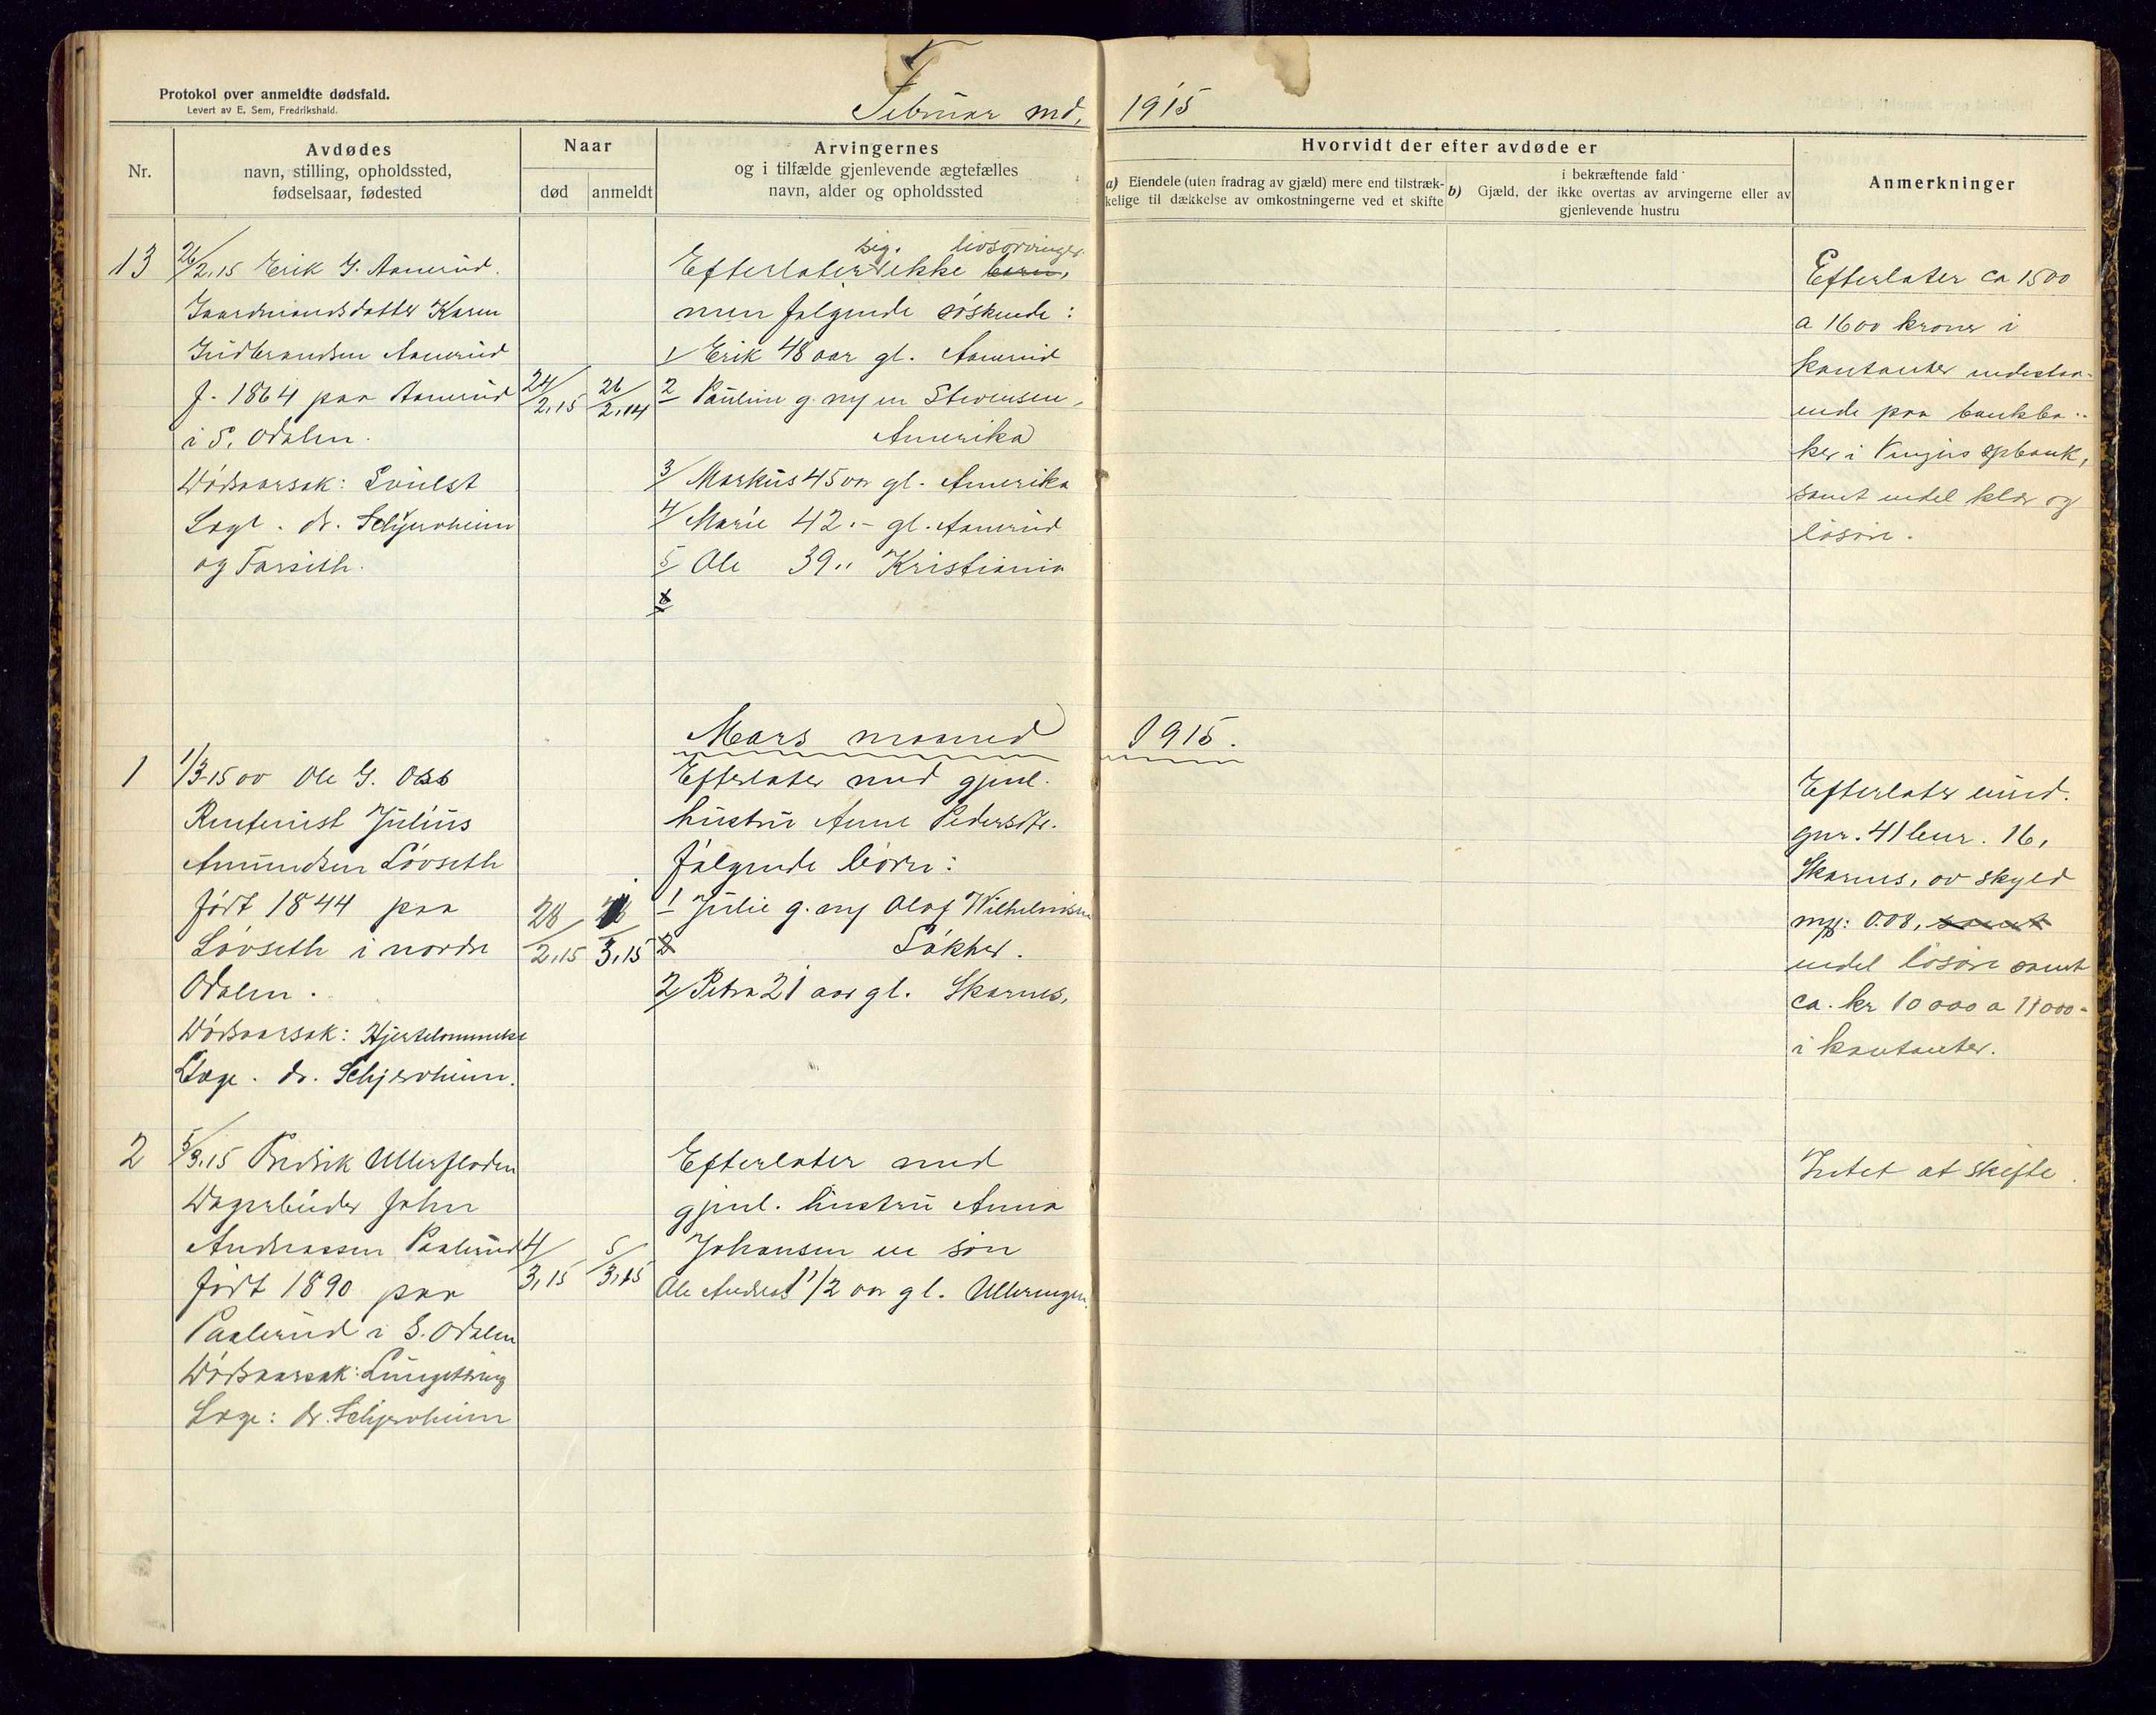 Protokol over anmeldte dødsfald.
Levert av E. Sem, Fredrikshald.
Februar md. 1915
Nr.
Avdødes
navn, stilling, opholdssted,
fødselsaar, fødested
Naar
død
anmeldt
Arvingernes
og i tilfælde gjenlevende ægtefælles
navn, alder og opholdssted
Hvorvidt der efter avdøde er
a) Eiendele (uten fradrag av gjæld) mere end tilstræk-
kelige til dækkelse av omkostningerne ved et skifte
i bekræftende fald
b) Gjæld, der ikke overtas av arvingerne eller av
gjenlevende hustru
Anmerkninger
13
26/2.15 Erik G. Aamrud.
Gaardmandsdatter Karen
Gudbrandsen Aamrud
f. 1864 paa Aamrud
i S. Odalen.
Dødsaarsak: Svulst
Læge. dr. Schjerveheim
og Farseth.
24/2.15
26/2.14
sig. livsarvinger
Efterlater ikke barn,
men følgende søskende:
1/ Erik 48 aar gl. Aamrud
2 Pauline g. m/ en Stevensen,
Amerika
3/ Markus 45 aar gl. Amerika
4/ Marie 42 .- gl. Aamrud
5/ Ole 39 " Kristiania
6
Efterlater ca 1500
a 1600 kroner i
kontanter indestaa-
ende paa bankbø-
ker i Vingers spbank,
samt endel klær og
løsøre.
Mars maaned 1915.
1
1/3-15 av Ole G. Oss
Rentenist Julius
Amundsen Løvseth
født 1844 paa
Løvseth i nordre
Odalen.
Dødsaarsak: Hjertelammelse
Læge. dr. Schjerveheim.
28/2.15
1/3.15
Efterlater med gjenl.
hustru Anne Pedersdtr.
følgende børn:
1 Julie g. m/ Olaf Wilhelmsen
2 Søkker.
2/ Petra 21 aar gl. Skarnes,
Efterlater eiend.
gnr. 41 bnr. 16,
Skarnes, av skyld
mrk: 0.08, samt
endel løsøre samt
ca. kr 10 000 a 11000-
i kontanter.
2
5/3.15 Fredrik Ullersfloden
Dagarbeider John
Andreassen Paalerud
født 1890 paa
Paalerud i S. Odalen
Dødsaarsak: Lungetæring
Læge: dr. Schjerveheim
4/3.15
5/3.15
Efterlater med
gjenl. hustru Anna
Johansen en søn
Ole Andreas 1 1/2 aar gl. Ulleringen.
Intet at skifte.